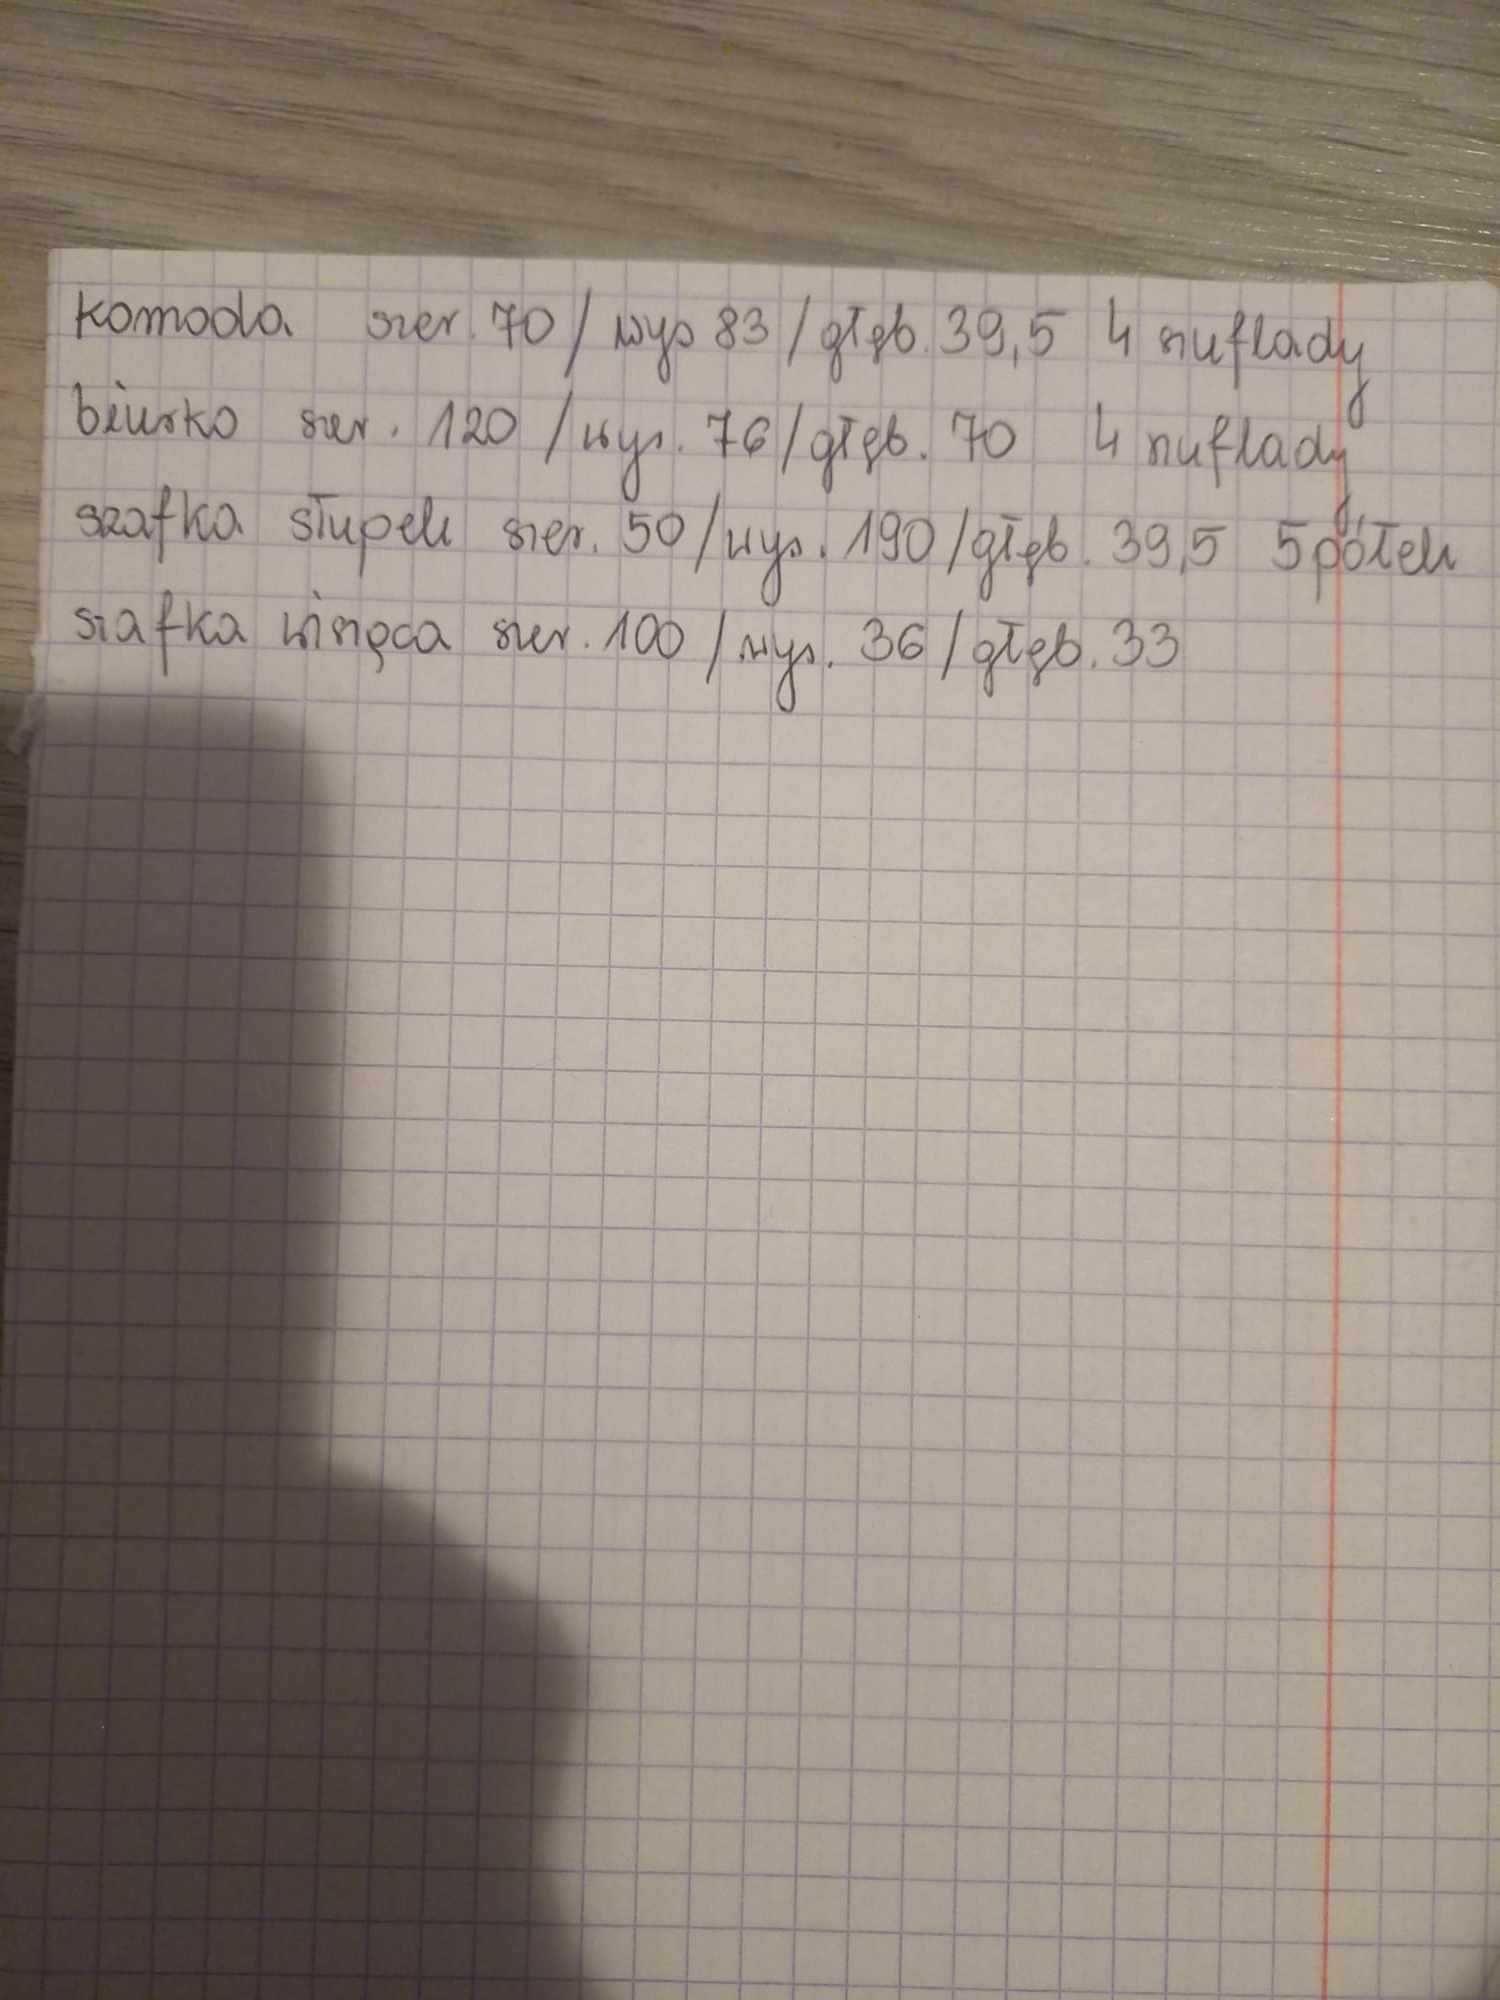 komoda szer. 70 / wys 83 / głęb. 39,5 4 szuflady
biurko szer. 120 / wys. 76 / głęb. 70 4 szuflady
szafka słupek szer. 50 / wys. 190 / głęb. 39,5 5 półek
szafka wisząca szer. 100 / wys. 36 / głęb. 33